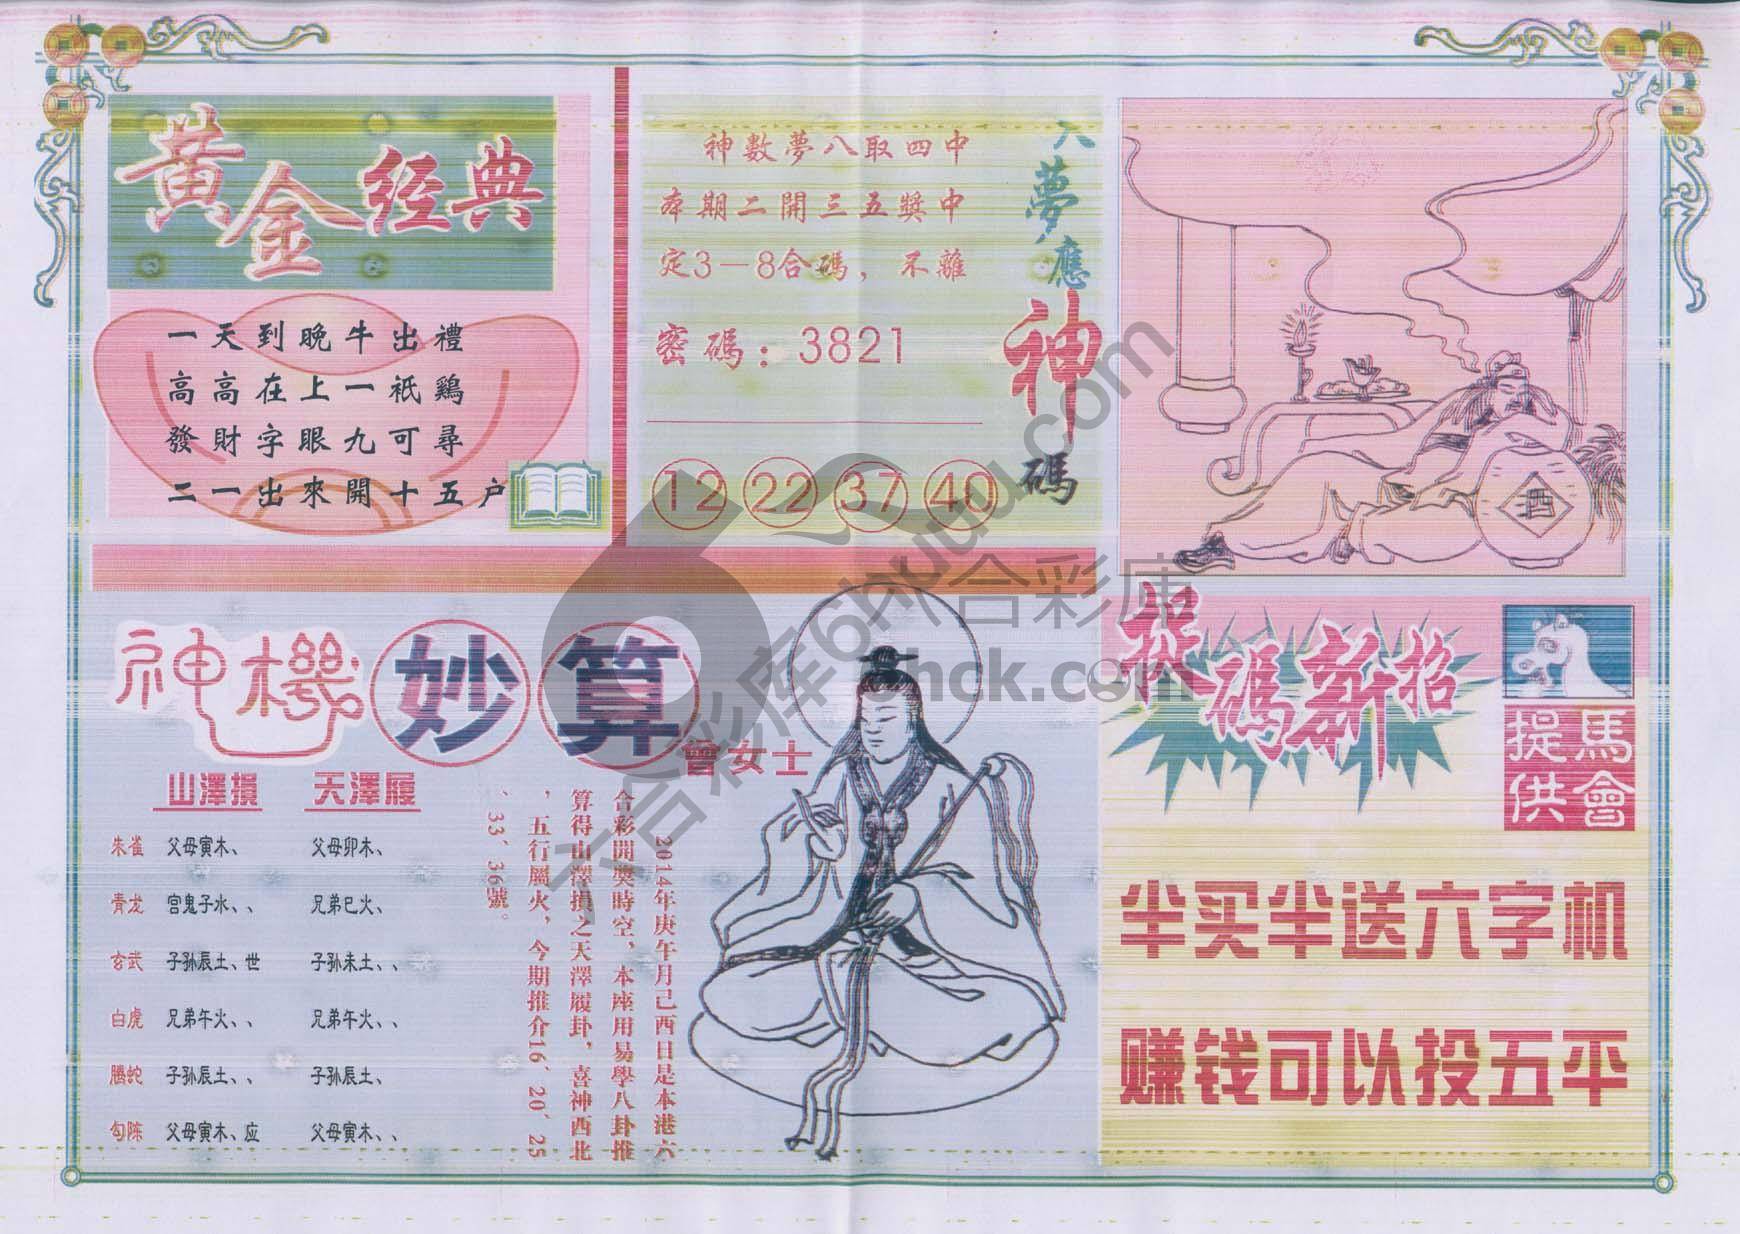 黃金經典
一天到晚牛出禮
高高在上一祇鷄
發財字眼九可尋
二一出來開十五户
入夢應神碼
神數夢八取四中
本期二開三五獎中
定3－8合碼，不離
密碼：3821
12 22 37 40
酒
神機妙算
曾女士
山澤損 天澤履
朱雀 父母寅木、 父母卯木、
青龙 宫鬼子水、、 兄弟巳火、
玄武 子孙辰土、世 子孙未土、、
白虎 兄弟午火、、 兄弟午火、、
腾蛇 子孙辰土、、 子孙辰土、
勾陈 父母寅木、应 父母寅木、、
2014年庚午月己酉日是本港六
合彩開獎時空，本座用易學八卦推
算得山澤損之天澤履卦，喜神西北
，五行屬火，今期推介16、20、25
、33、36號。
捉碼新招
馬會提供
半买半送六字机
赚钱可以投五平
六合彩库6huuu.com
六合彩庫
hck.com